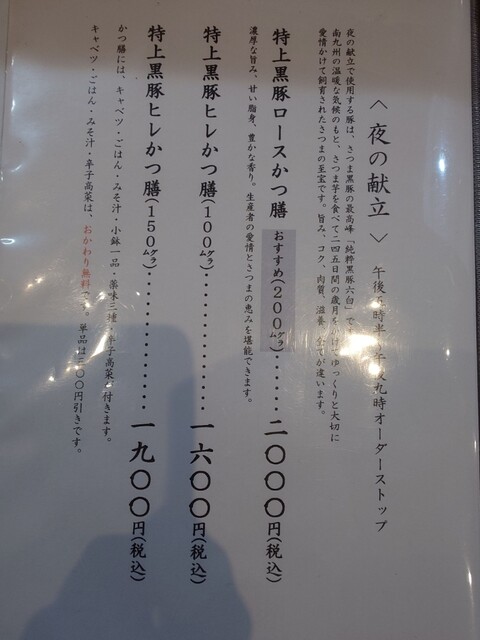 〈夜の献立〉
午後 時半 午後九時オーダーストップ
夜の献立で使用する豚は、さつま黒豚の最高峰「純粋黒豚六白」で
南九州の温暖な気候のもと、さつま芋を食べて二四五日間の歳月を ゆっくりと大切に
愛情かけて飼育されたさつまの至宝です。旨み、コク、肉質、滋養、全てが違います。
特上黒豚ロースかつ膳 おすすめ(200㌘)……二〇〇〇円(税込)
濃厚な旨み、甘い脂身、豊かな香り。生産者の愛情とさつまの恵みを堪能できます。
特上黒豚ヒレかつ膳(100㌘)…………一六〇〇円(税込)
特上黒豚ヒレかつ膳(150㌘)…………一九〇〇円(税込)
かつ膳には、キャベツ・ごはん・みそ汁・小鉢一品・薬味三種・辛子高菜が付きます。
キャベツ・ごはん・みそ汁・辛子高菜は、おかわり無料です。単品は 〇〇円引きです。